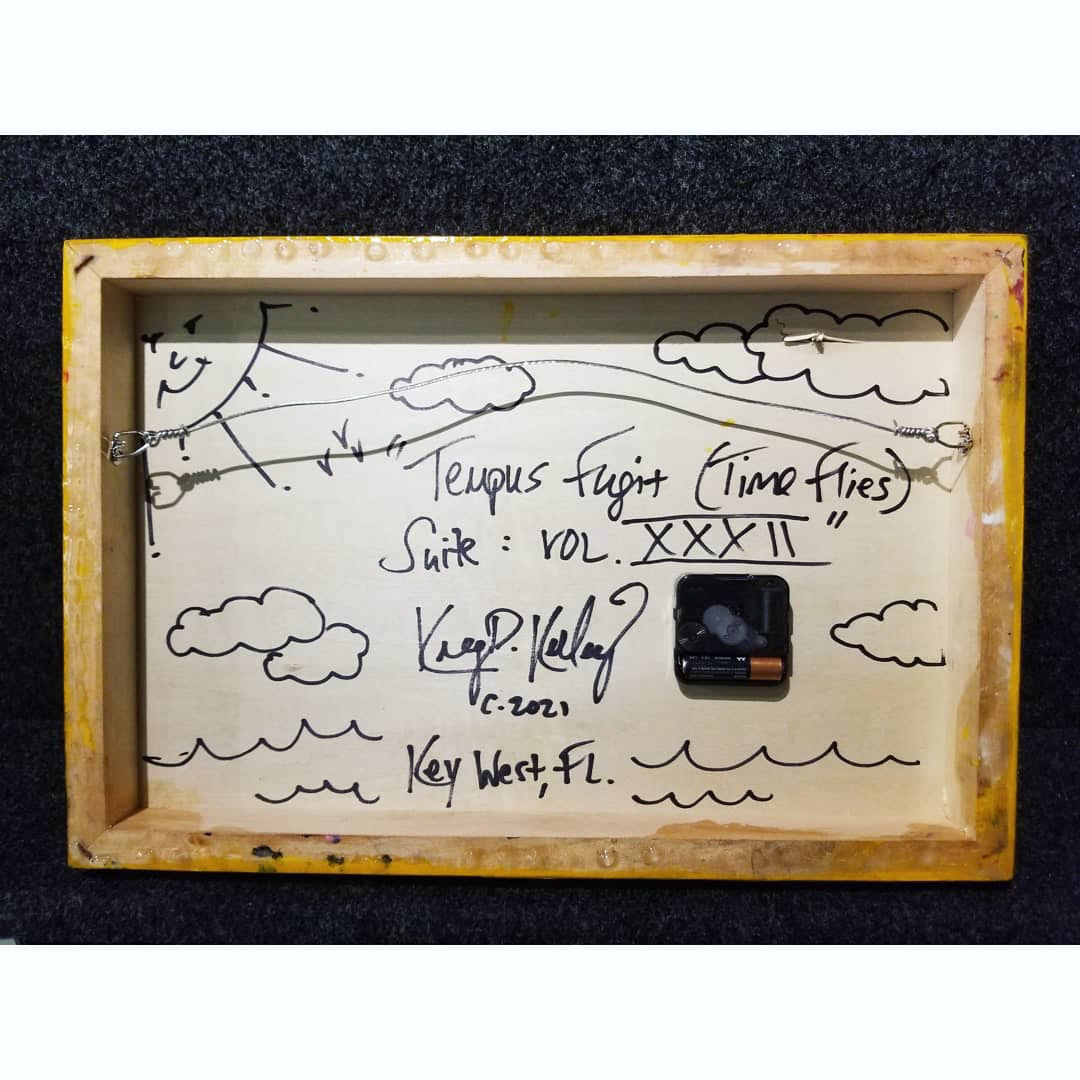 "Tempus Fugit (Time Flies)
Suite : VOL. XXXII"
Kreg D. Kelley
c. 2021
Key West, FL.